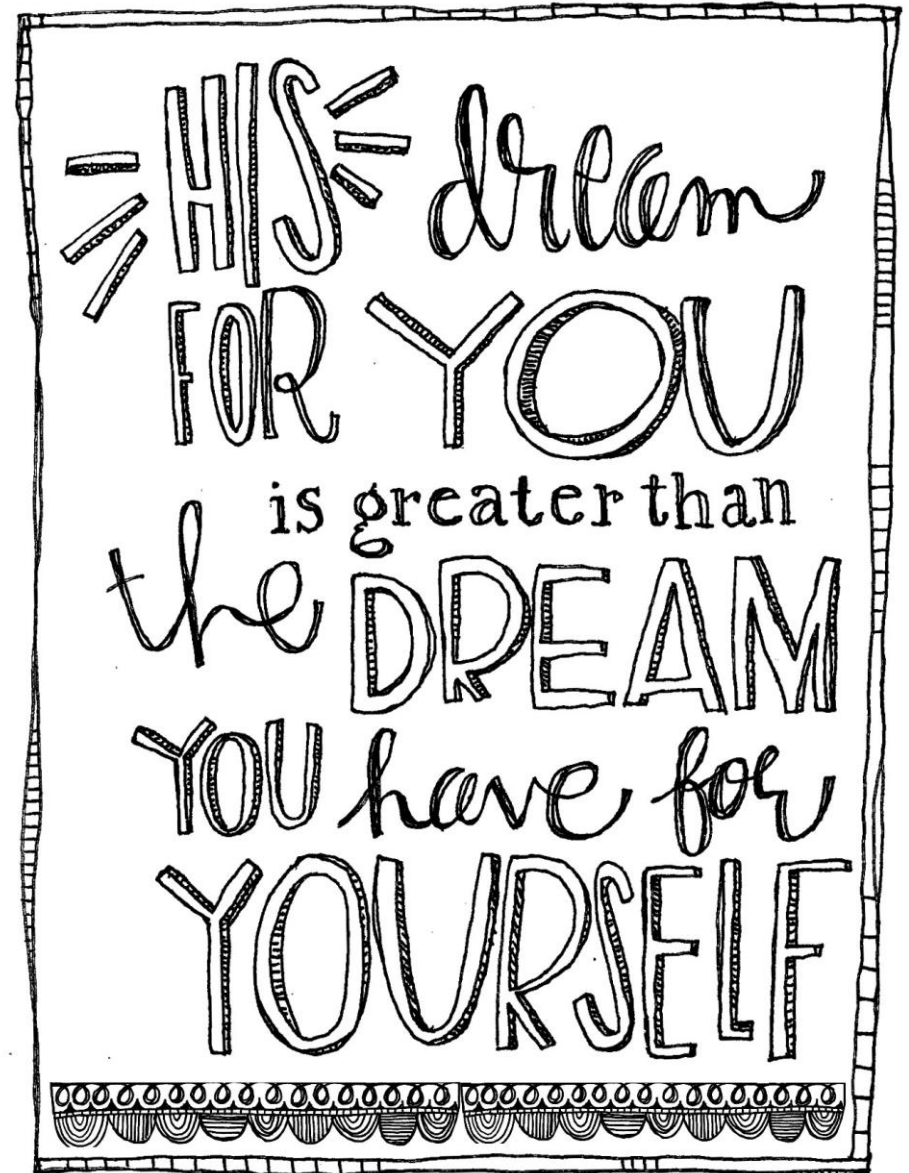 HIS dream
FOR YOU
is greater than
the DREAM
YOU have for
YOURSELF